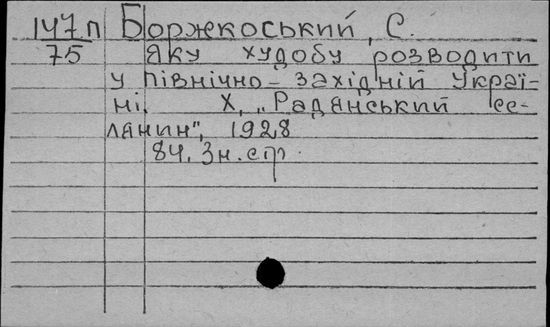 147п Боржкоський, С.
75 Яку худобу розводити
у північно-західній Украї-
ні. Х, „Радянський се-
лянин", 1928
84, 3н. стр.